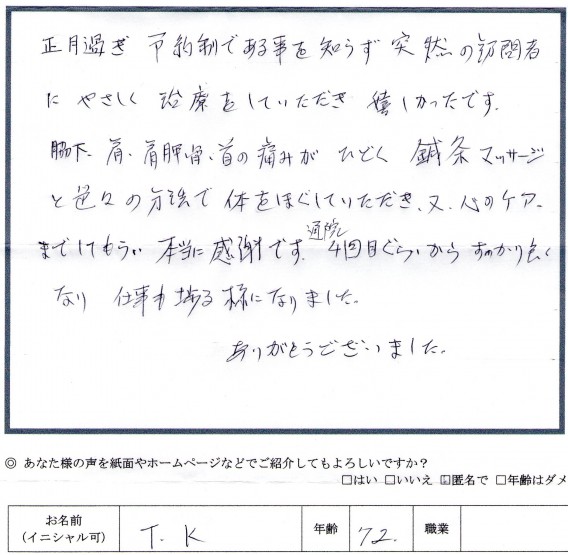 正月過ぎ 予約制である事を知らず 突然の訪問者
に やさしく 治療をしていただき 嬉しかったです.
脇下、肩、肩胛骨、首の痛みが ひどく 鍼灸 マッサージ
と色々の方法で 体をほぐしていただき、又、心のケア、
までしてもらい 本当に 感謝です. 通院4回目ぐらいから すっかり良く
なり 仕事も捗る様になりました。
ありがとうございました.
◎ あなた様の声を紙面やホームページなどでご紹介してもよろしいですか？
□はい □いいえ □匿名で □年齢はダメ
お名前
(イニシャル可) T. K 年齢 72. 職業